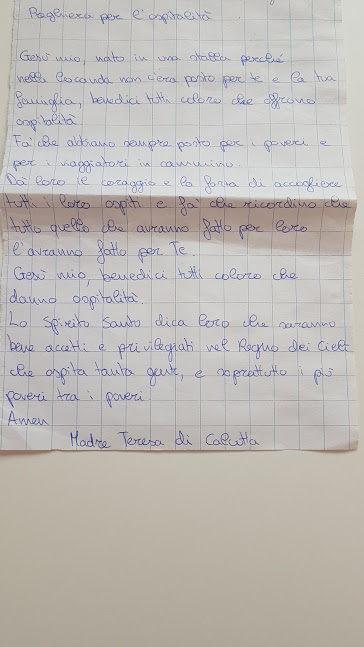 Preghiera per l'ospitalità
Gesù mio, nato in una stalla perché
nella locanda non c'era posto per te e la tua
famiglia, benedici tutti coloro che offrono
ospitalità
Fa' che abbiano sempre posto per i poveri e
per i viaggiatori in cammino.
Dai loro il coraggio e la forza di accogliere
tutti i loro ospiti e fa' che ricordino che
tutto quello che avranno fatto per loro
l'avranno fatto per Te.
Gesù mio, benedici tutti coloro che
danno ospitalità.
Lo Spirito Santo dica loro che saranno
bene accetti e privilegiati nel Regno dei Cieli
che ospita tanta gente, e soprattutto i più
poveri tra i poveri.
Amen
Madre Teresa di Calcutta